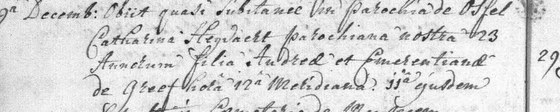 9a Decemb: Obiit quasi subitanee in parochia de Ossel
Catharina Heydaert parochiana nostra 23
Annorum filia Andreæ et Emerentianæ
de Greef hora 12a Meridiana. 11a ejusdem
29